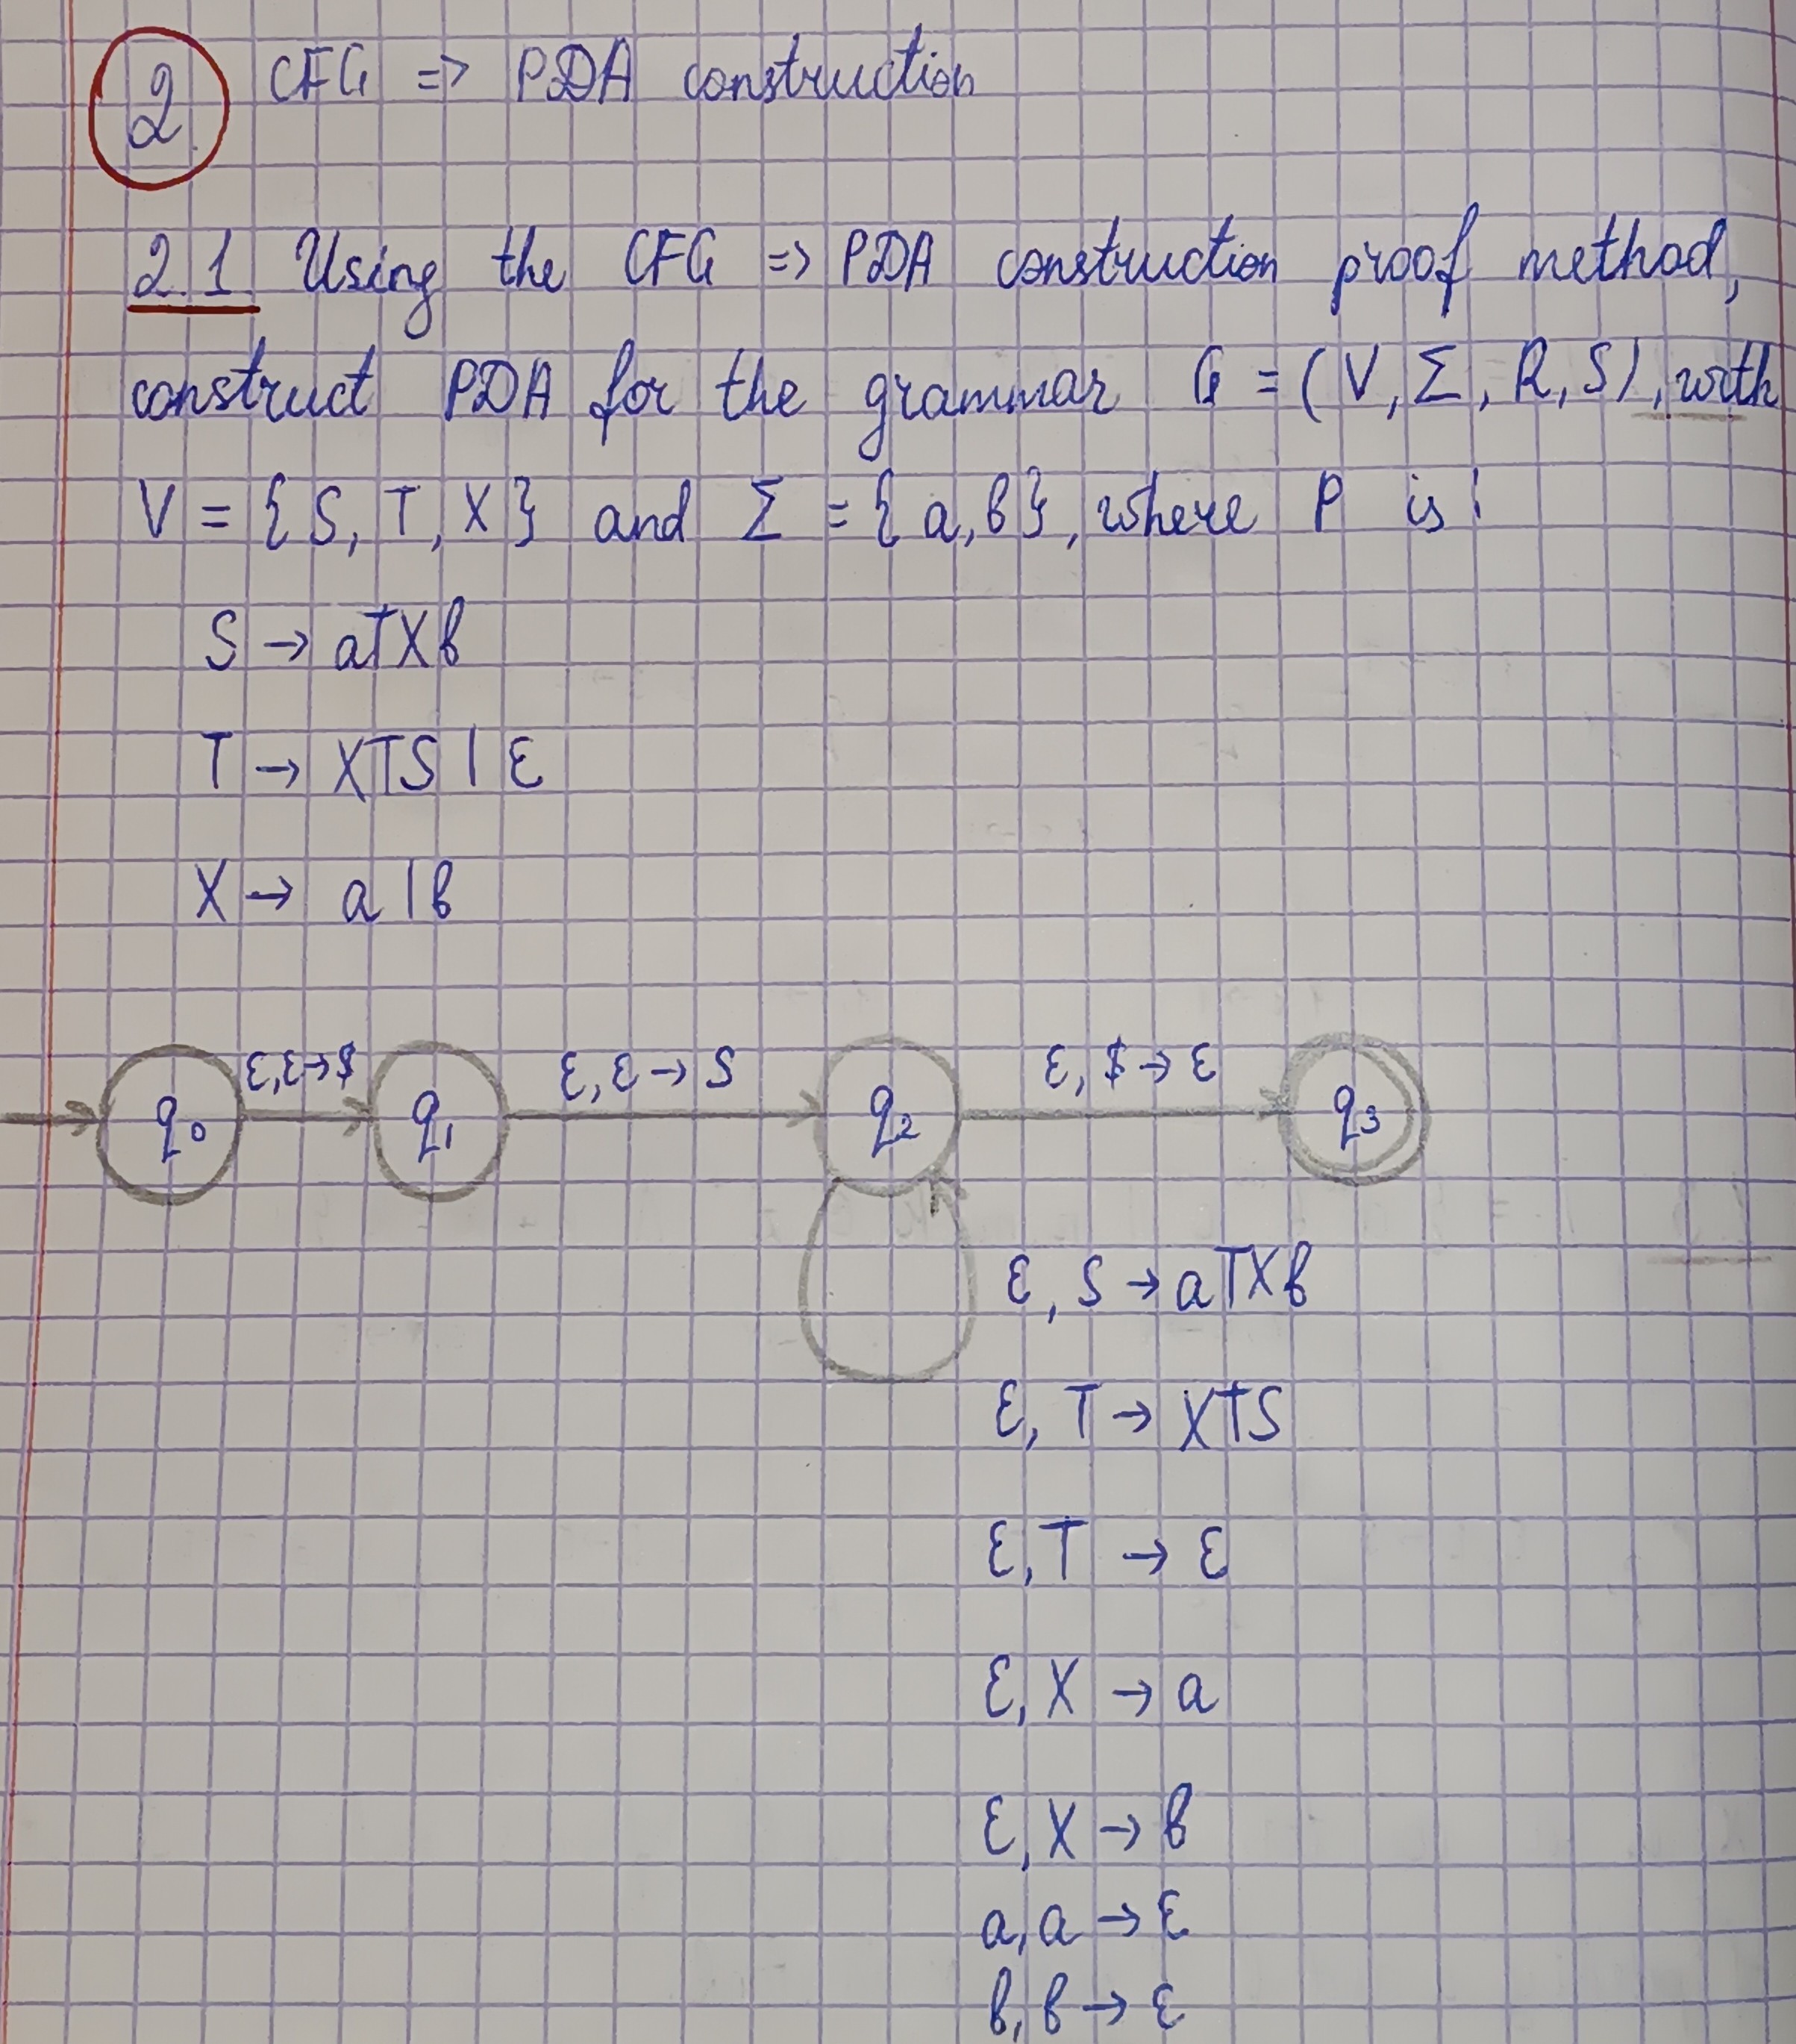 2 CFG => PDA construction
2.1 Using the CFG => PDA construction proof method,
construct PDA for the grammar G = (V, Σ, R, S), with
V = {S, T, X} and Σ = {a, b}, where P is:
S → aTXb
T → XTS | ε
X → a | b
q₀ ε,ε→$ q₁ ε, ε → S q₂ ε, $ → ε q₃
ε, S → aTXb
ε, T → XTS
ε, T → ε
ε, X → a
ε, X → b
a, a → ε
b, b → ε